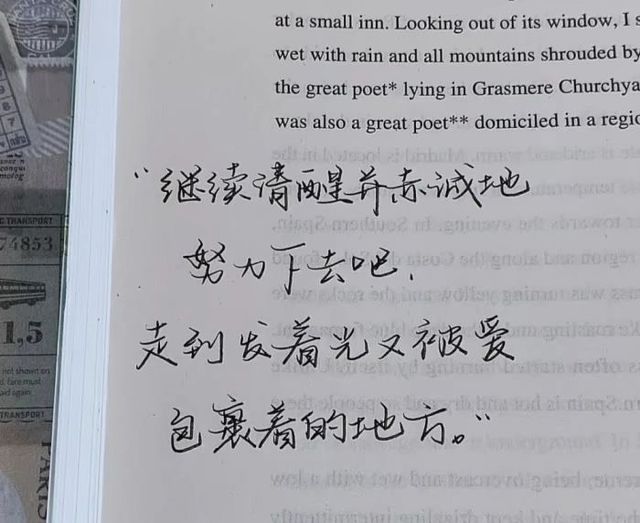 at a small inn. Looking out of its window, I s
wet with rain and all mountains shrouded by
the great poet* lying in Grasmere Churchya
was also a great poet** domiciled in a regio
“继续清醒并赤诚地
努力下去吧，
走到发着光又被爱
包裹着的地方。”
TRANSPORT
74853
1,5
not shown on
TRANSPORT
PARIS